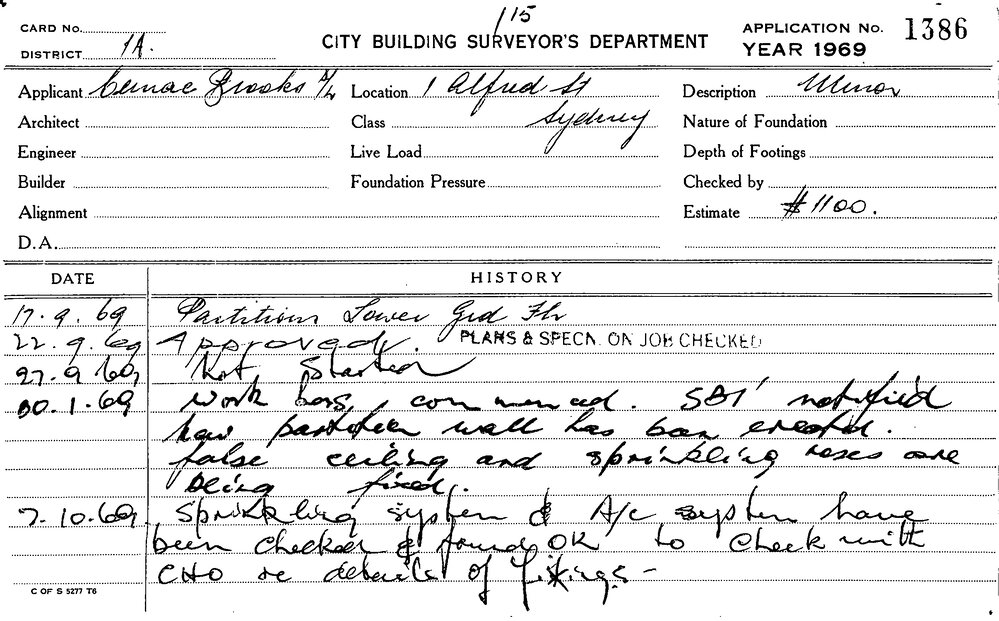 115
CARD No.
DISTRICT 1A.
CITY BUILDING SURVEYOR'S DEPARTMENT
APPLICATION No. 1386
YEAR 1969
Applicant Brooks P/L Location 1 Alfred St Description Minor
Architect Class Sydney Nature of Foundation
Engineer Live Load Depth of Footings
Builder Foundation Pressure Checked by
Alignment Estimate $1100.
D.A.
DATE HISTORY
17.9.69 Partitions Lower Grd Flr
22.9.69 Approved. PLANS & SPECN. ON JOB CHECKED
27.9.69 Not Started
30.1.69 Work has commenced. SBI notified
how partition wall has been erected.
false ceiling and sprinkling roses are
being fixed.
7.10.69 Sprinkling system & A/c system have
been checked & found OK to check with
CHO re details of fixings -
C OF S 5277 T6